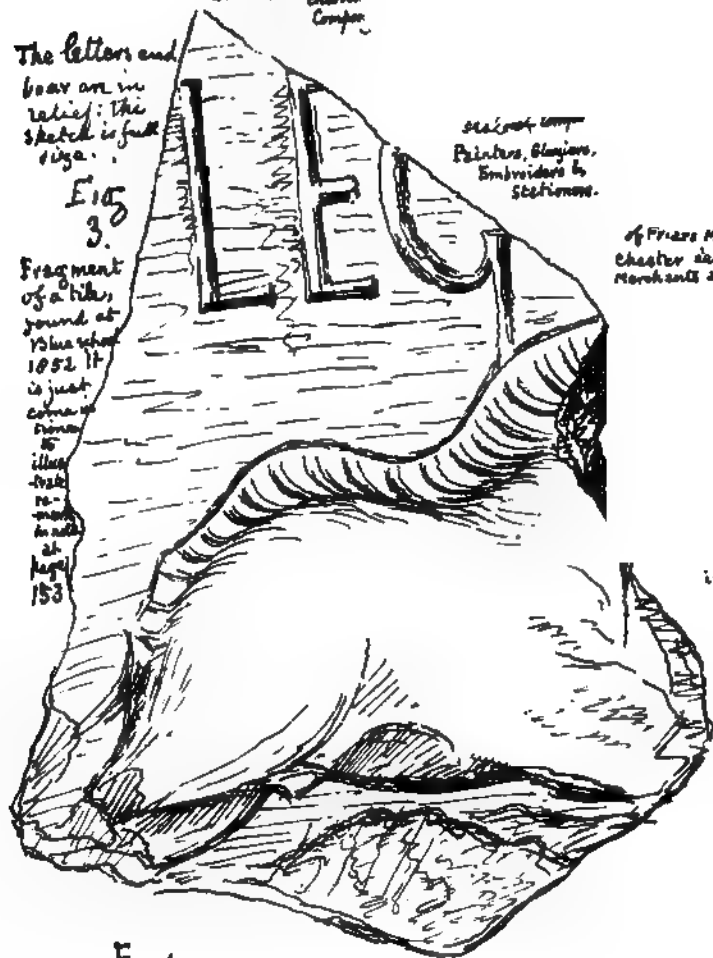 Compy.
The letters and
boar are in
relief: the
sketch is full
size.
Fig
3.
Fragment
of a tile,
found at
Blue school
1852 It
is just
come
time
to
illus
-trate
re-
-mark
in note
at
page
153
LEG
Painters, Glaziers,
Embroiders &
Stationers.
of Friars
Chester
Merchants
F